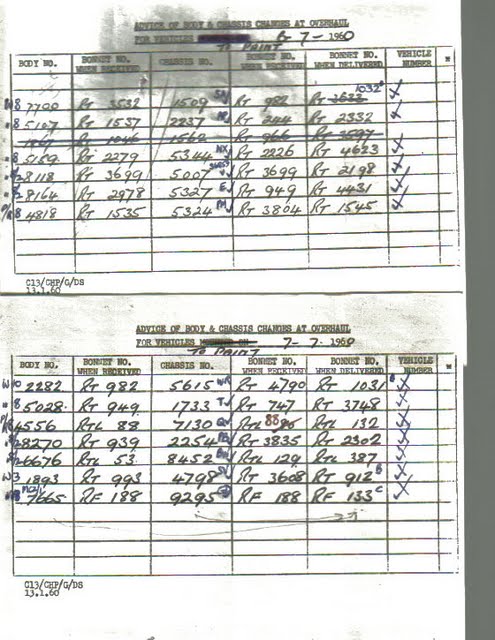 ADVICE OF BODY & CHASSIS CHANGES AT OVERHAUL
FOR VEHICLES 6-7-1960
TO PAINT
BODY NO. BONNET NO. WHEN RECEIVED CHASSIS NO. BONNET NO. WHEN RECEIVED BONNET NO. WHEN DELIVERED VEHICLE NUMBER
1032
8 7700 RT 3532 1509 RT 982 RT 3633
8 5107 RT 1537 2237 RT 244 RT 2332
1867 RT 1046 1562 RT 966 RT 3597
8 5159 RT 2279 5344 NX RT 2226 RT 4623
8118 RT 3699 5007 RT 3699 RT 2198
8164 RT 2978 5327 E RT 949 RT 4431
8 4818 RT 1535 5324 RT 3804 RT 1545
C13/CHP/G/DS
13.1.60
ADVICE OF BODY & CHASSIS CHANGES AT OVERHAUL
FOR VEHICLES 7-7-1960
TO PAINT
BODY NO. BONNET NO. WHEN RECEIVED CHASSIS NO. BONNET NO. WHEN RECEIVED BONNET NO. WHEN DELIVERED VEHICLE NUMBER
W10 2282 RT 982 5615 WR RT 4790 RT 1031
8 5028 RT 949 1733 RT 747 RT 3748
4556 RTL 88 7130 RTL 88 RTL 132
8270 RT 939 2254 RT 3835 RT 2302
6676 RTL 53 8452 RTL 129 RTL 387
W3 1893 RT 993 4798 SV RT 3608 RT 912 B
7665 RF 188 9295 RF 188 RF 133 C
C13/CHP/G/DS
13.1.60